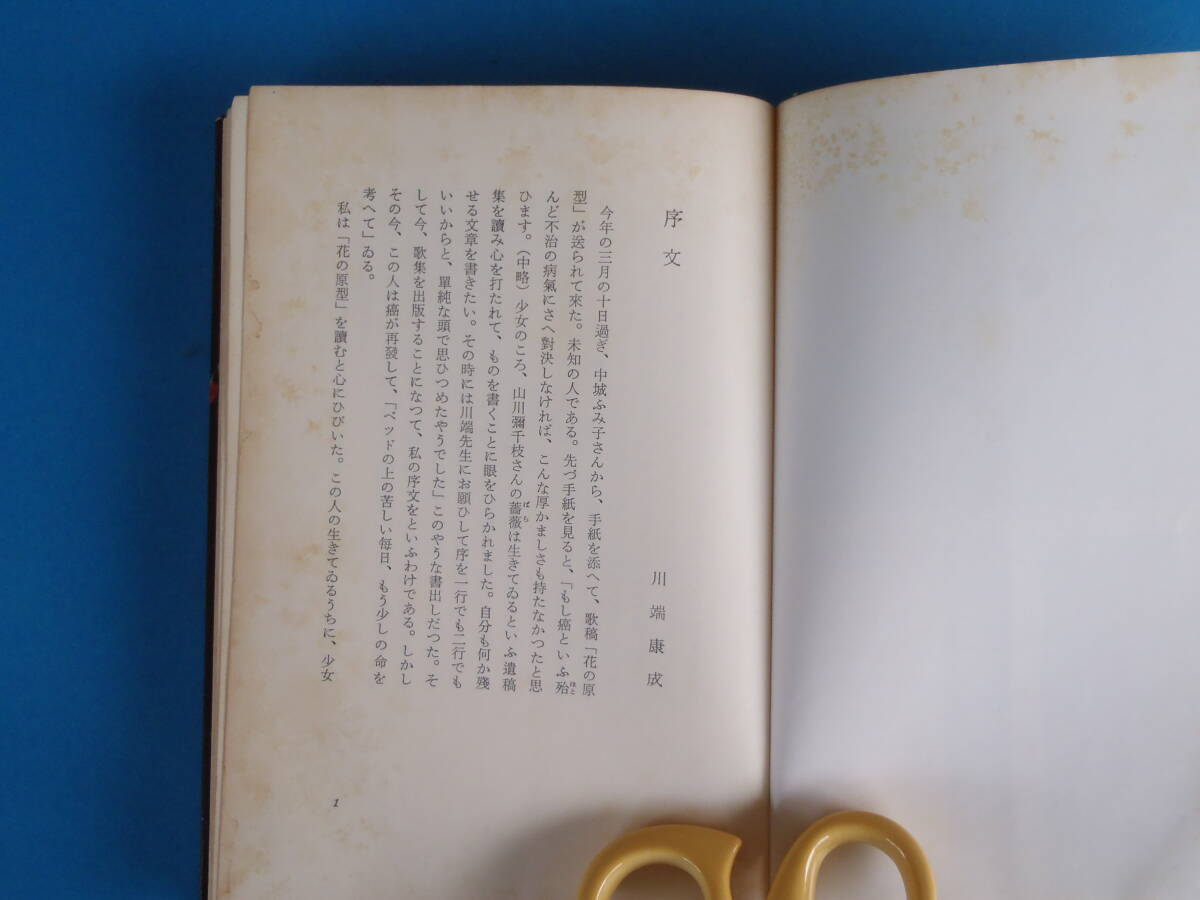 序文
川端康成
今年の三月の十日過ぎ、中城ふみ子さんから、手紙を添へて、歌稿「花の原
型」が送られて來た。未知の人である。先づ手紙を見ると、「もし癌といふ殆ほと
んど不治の病氣にさへ對決しなければ、こんな厚かましさも持たなかつたと思
ひます。(中略)少女のころ、山川彌千枝さんの薔薇ばらは生きてゐるといふ遺稿
集を讀み心を打たれて、ものを書くことに眼をひらかれました。自分も何か殘
せる文章を書きたい。その時には川端先生にお願ひして序を一行でも二行でも
いいからと、單純な頭で思ひつめたやうでした」このやうな書出しだつた。そ
して今、歌集を出版することになつて、私の序文をといふわけである。しかし
その今、この人は癌が再發して、「ベッドの上の苦しい每日、もう少しの命を
考へて」ゐる。
私は「花の原型」を讀むと心にひびいた。この人の生きてゐるうちに、少女
1